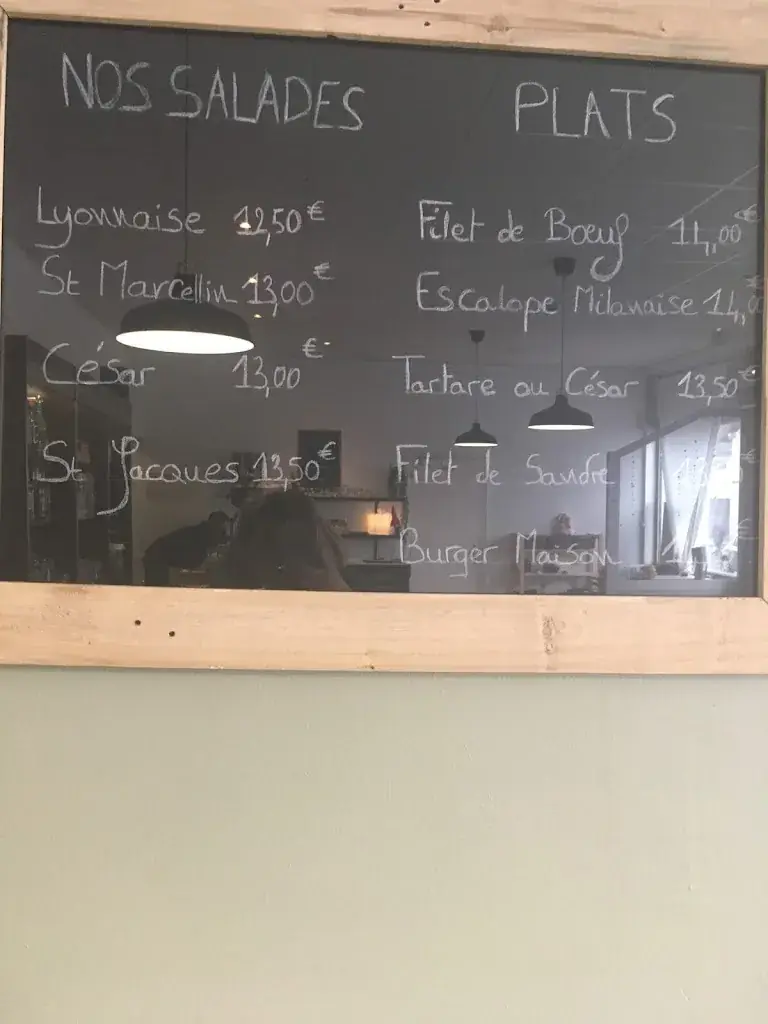 NOS SALADES
Lyonnaise 12,50€
St Marcellin 13,00€
César 13,00€
St Jacques 13,50€
PLATS
Filet de Bœuf 14,00€
Escalope Milanaise 14,
Tartare ou César 13,50€
Filet de Sandre €
Burger Maison €